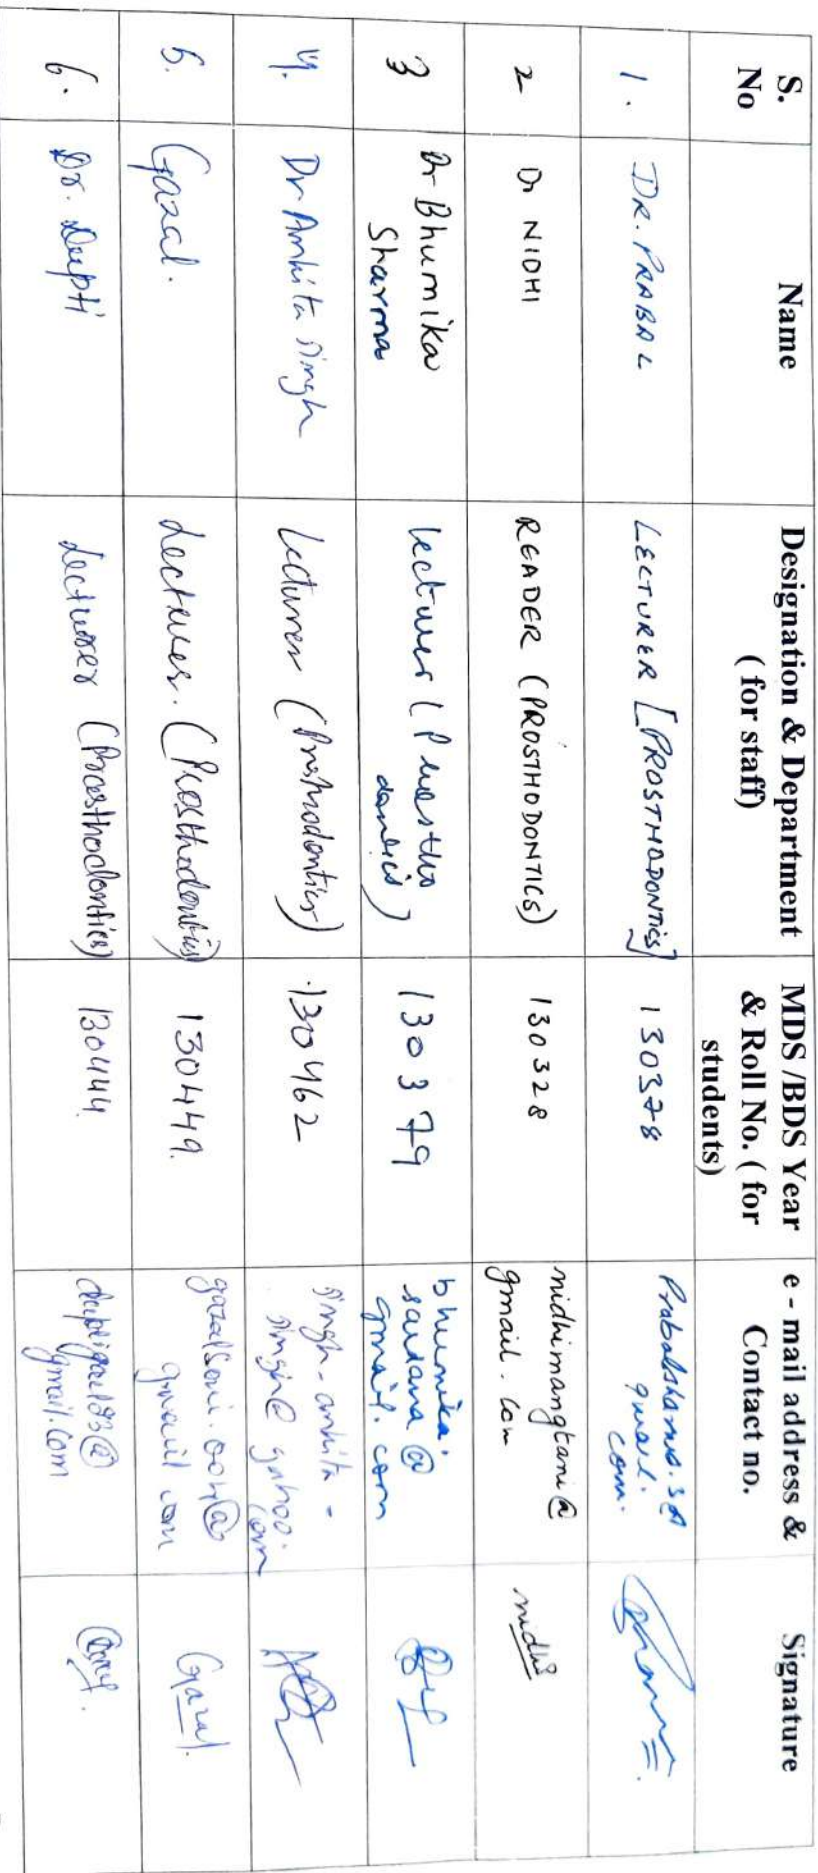 S. No
Name
Designation & Department ( for staff)
MDS /BDS Year & Roll No. ( for students)
e - mail address & Contact no.
Signature
1.
DR. PRABAL
LECTURER [PROSTHODONTICS]
130378
gmail.
com.
2
Dr NIDHI
READER (PROSTHODONTICS)
130328
nidhimangtani@
gmail.com
nidhi
3
Dr Bhumika
Sharma
Lecturer (Prostho
dontics)
130379
bhumika.
sardana@
gmail.com
4.
Dr Ankita Singh
Lecturer (Prosthodontics)
130462
singh-ankita-
singh@yahoo.
com
5.
Gazal.
Lecturer. (Prosthodontics)
130449.
gazalsoni.004@
gmail com
Gazal.
6.
Dr. Deepti
Lecturer (Prosthodontics)
130444.
gmail.com